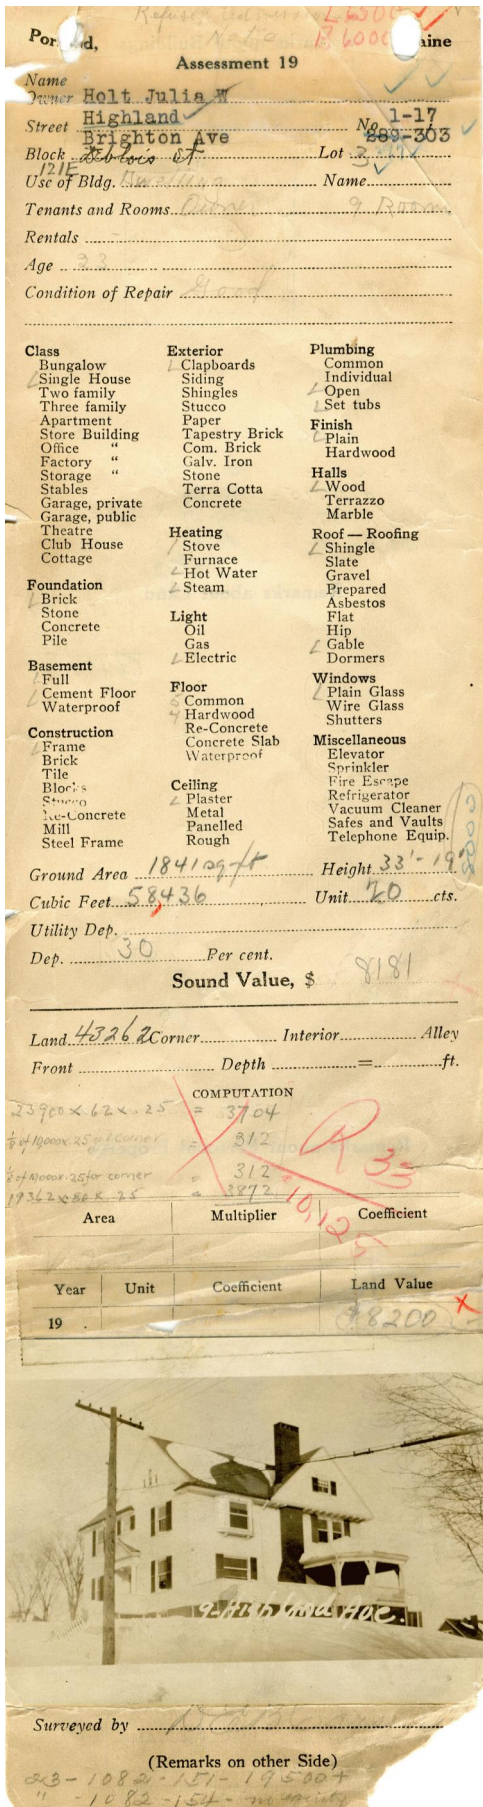 L 6500
Portland, Maine
B 6000
Assessment 19
Name
Owner Holt Julia W
Street Highland No 1-17
Brighton Ave 289-303
Block Deblois St Lot 3
121E
Use of Bldg. Dwelling Name
Tenants and Rooms Owner 9 Room
Rentals -
Age 33
Condition of Repair Good
Class
Bungalow
Single House
Two family
Three family
Apartment
Store Building
Office "
Factory "
Storage "
Stables
Garage, private
Garage, public
Theatre
Club House
Cottage
Foundation
Brick
Stone
Concrete
Pile
Basement
Full
Cement Floor
Waterproof
Construction
Frame
Brick
Tile
Blocks
Stucco
Re-Concrete
Mill
Steel Frame
Exterior
Clapboards
Siding
Shingles
Stucco
Paper
Tapestry Brick
Com. Brick
Galv. Iron
Stone
Terra Cotta
Concrete
Heating
Stove
Furnace
Hot Water
Steam
Light
Oil
Gas
Electric
Floor
5 Common
4 Hardwood
Re-Concrete
Concrete Slab
Waterproof
Ceiling
Plaster
Metal
Panelled
Rough
Plumbing
Common
Individual
Open
Set tubs
Finish
Plain
Hardwood
Halls
Wood
Terrazzo
Marble
Roof — Roofing
Shingle
Slate
Gravel
Prepared
Asbestos
Flat
Hip
Gable
Dormers
Windows
Plain Glass
Wire Glass
Shutters
Miscellaneous
Elevator
Sprinkler
Fire Escape
Refrigerator
Vacuum Cleaner
Safes and Vaults
Telephone Equip.
Ground Area 1841 sq-ft Height 33'-19'
Cubic Feet 58,436 Unit 20 cts.
Utility Dep.
Dep. 30 Per cent.
Sound Value, $ 8181
Land 43262 Corner Interior Alley
Front Depth = ft.
COMPUTATION
23900 x .62 x .25 = 3704
1/8 of 10000 x .25 for corner = 312
1/8 of 10000 x .25 for corner = 312
19362 x 80 x .25 = 3872
R 33
10,125
Area Multiplier Coefficient
Year Unit Coefficient Land Value
19 . $8200 x
9-Highland Ave.
Surveyed by
(Remarks on other Side)
23-1082-151-19500+
" -1082-154-